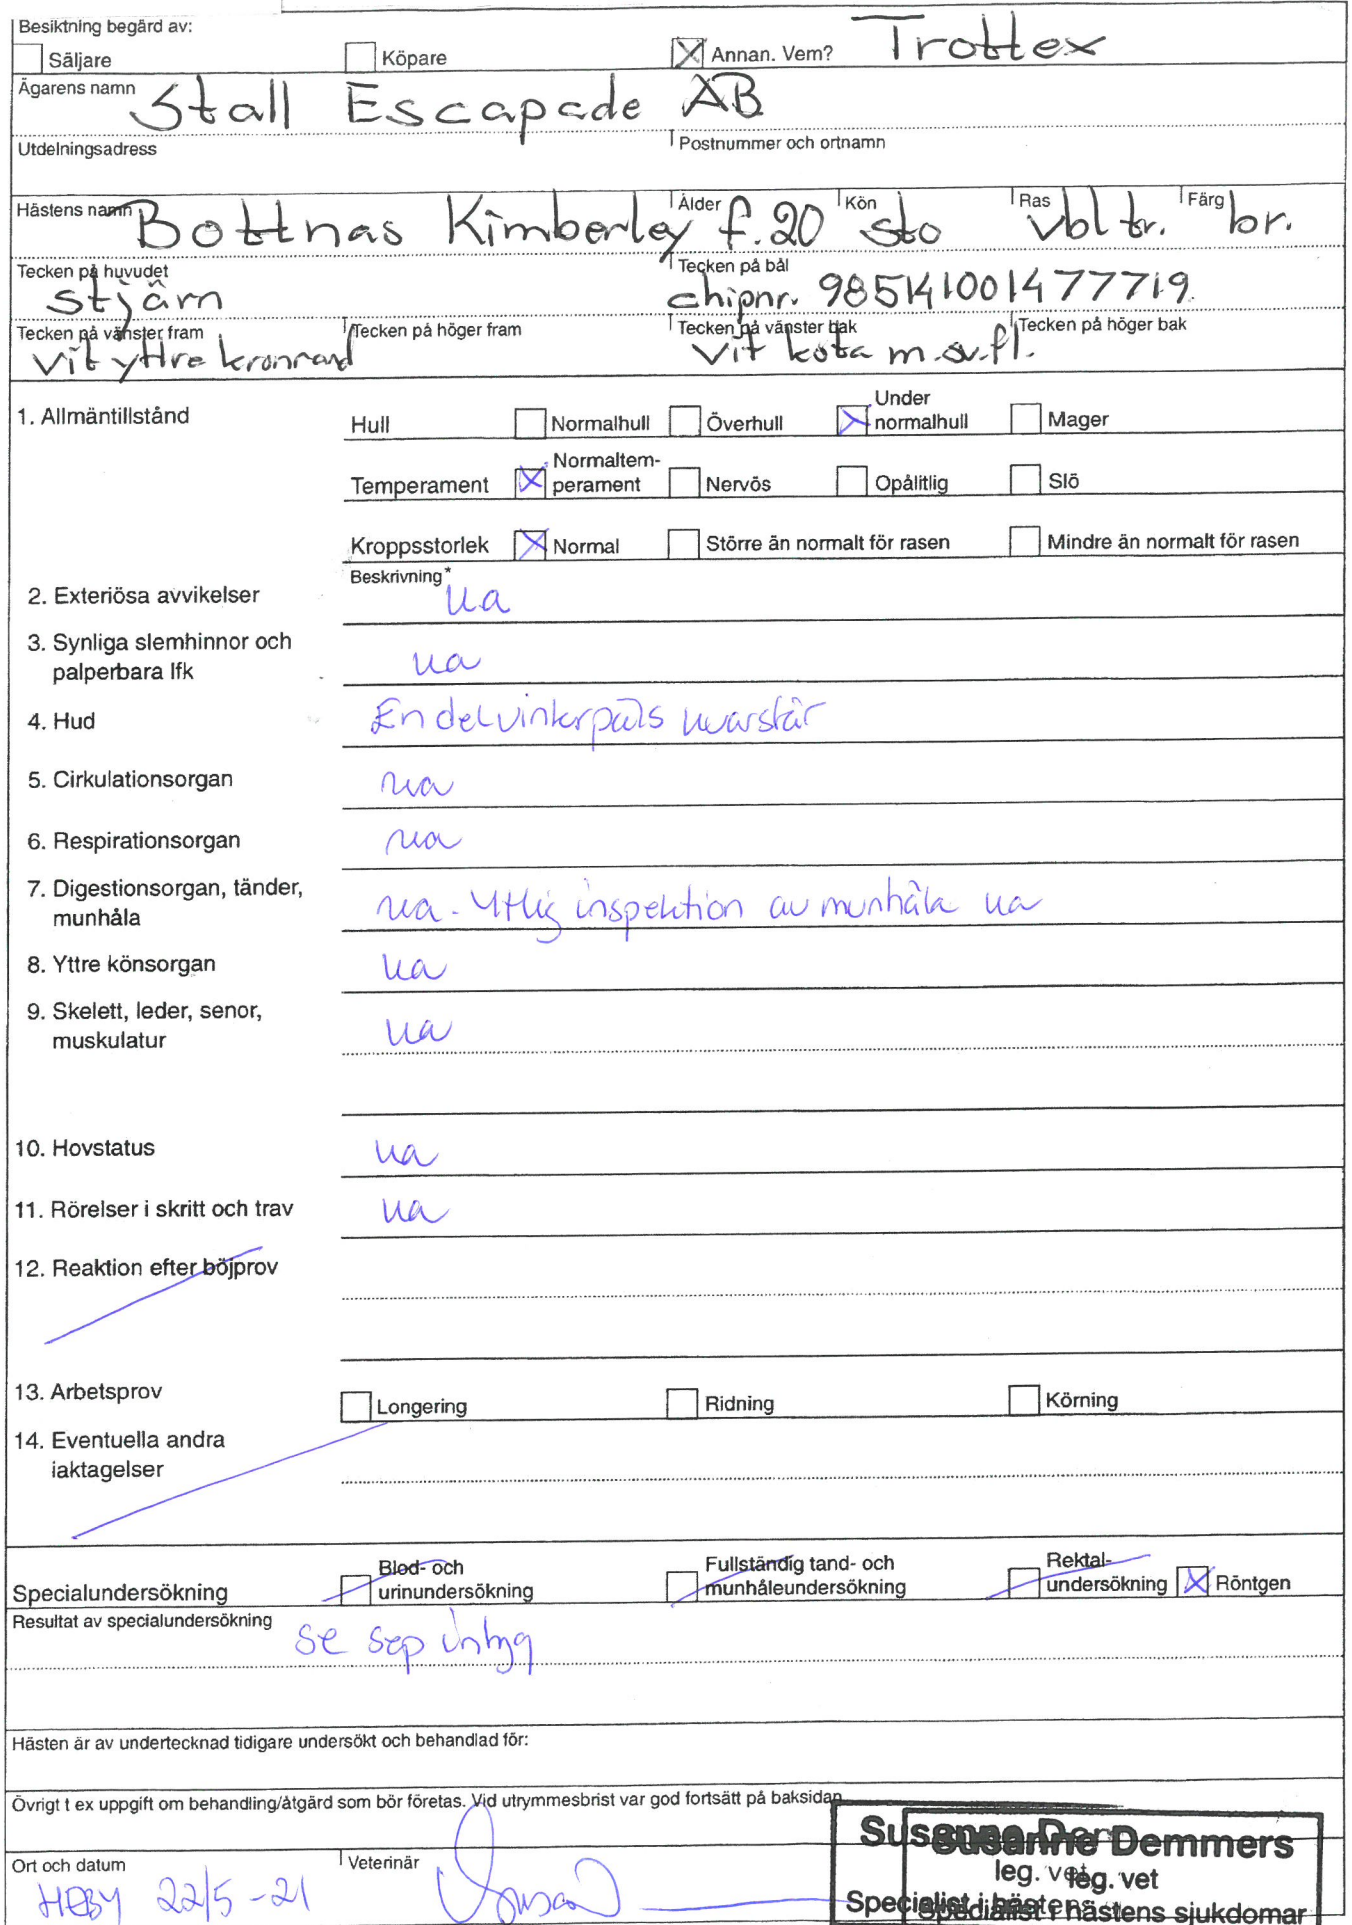 Besiktning begärd av:
Säljare Köpare Annan. Vem? Trottex
Ägarens namn Stall Escapade AB
Utdelningsadress Postnummer och ortnamn
Hästens namn Bottnas Kimberley Ålder f.20 Kön sto Ras vbl tr. Färg br.
Tecken på huvudet Tecken på bål
stjärn chipnr. 985141001477719
Tecken på vänster fram Tecken på höger fram Tecken på vänster bak Tecken på höger bak
vit yttre kronrand vit kota m.sv.fl.
1. Allmäntillstånd Hull Normalhull Överhull Under normalhull Mager
Temperament Normaltem-
perament Nervös Opålitlig Slö
Kroppsstorlek Normal Större än normalt för rasen Mindre än normalt för rasen
Beskrivning*
2. Exteriösa avvikelser ua
3. Synliga slemhinnor och
palperbara lfk ua
4. Hud En del vinterpäls kvarstår
5. Cirkulationsorgan ua
6. Respirationsorgan ua
7. Digestionsorgan, tänder,
munhåla ua. Ytlig inspektion av munhåla ua
8. Yttre könsorgan ua
9. Skelett, leder, senor,
muskulatur ua
10. Hovstatus ua
11. Rörelser i skritt och trav ua
12. Reaktion efter böjprov
13. Arbetsprov Longering Ridning Körning
14. Eventuella andra
iaktagelser
Specialundersökning Blod- och urinundersökning Fullständig tand- och munhåleundersökning Rektal-undersökning Röntgen
Resultat av specialundersökning se sep intyg
Hästen är av undertecknad tidigare undersökt och behandlad för:
Övrigt t ex uppgift om behandling/åtgärd som bör företas. Vid utrymmesbrist var god fortsätt på baksidan
Ort och datum Veterinär
HEBY 22/5-21
Susanne Demmers
leg. vet
Specialist i hästens sjukdomar